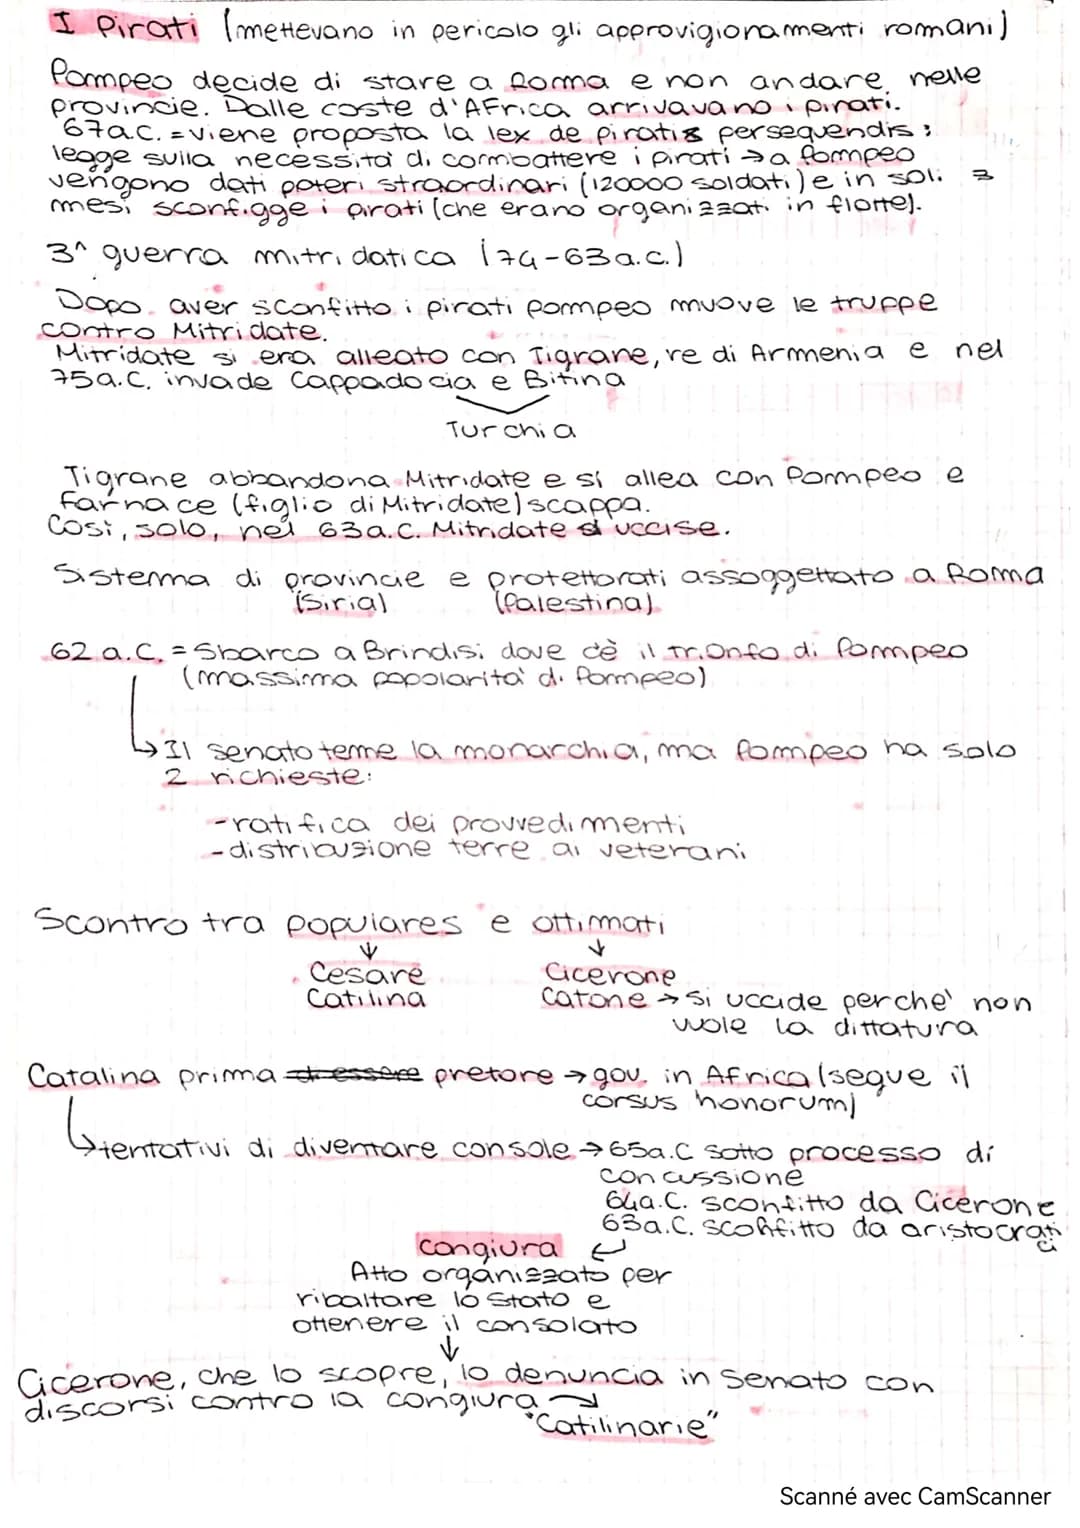 I Pirati (mettevano in pericolo gli approvigionamenti romani)
Pompeo decide di stare a Roma e non andare nelle
provincie. Dalle coste d'Africa arrivavano i pirati.
67a.c. = viene proposta la lex de piratis persequendis:
legge sulla necessità di combattere i pirati → a Pompeo
vengono dati poteri straordinari (120000 soldati) e in soli 3
mesi sconfigge i pirati (che erano organizzati in flotte).
3^ guerra mitridatica (74-63a.c.)
Dopo aver sconfitto i pirati Pompeo muove le truppe
contro Mitridate.
Mitridate si era alleato con Tigrane, re di Armenia e nel
75a.C. invade Cappadocia e Bitina
Turchia
Tigrane abbandona Mitridate e si allea con Pompeo e
Farnace (figlio di Mitridate) scappa.
Così, solo, nel 63a.C. Mitridate si uccise.
Sistema di provincie e protettorati assoggettato a Roma
(Siria) (Palestina)
62 a.C. = Sbarco a Brindisi dove cè il trionfo di Pompeo
(massima popolarità di Pompeo)
↳ Il senato teme la monarchia, ma Pompeo ha solo
2 richieste:
- ratifica dei provvedimenti
- distribuzione terre ai veterani
Scontro tra populares e ottimati
↓ ↓
Cesare Cicerone
Catilina Catone → si uccide perche' non
vuole la dittatura
Catalina prima di essere pretore → gov. in Africa (segue il
corsus honorum)
↳ tentativi di diventare console → 65a.C sotto processo di
concussione
64a.C. sconfitto da Cicerone
63a.C. sconfitto da aristocrati
ci
congiura ↵
Atto organizzato per
ribaltare lo stato e
ottenere il consolato
↓
Cicerone, che lo scopre, lo denuncia in Senato con
discorsi contro la congiura →
"Catilinarie"
Scanné avec CamScanner